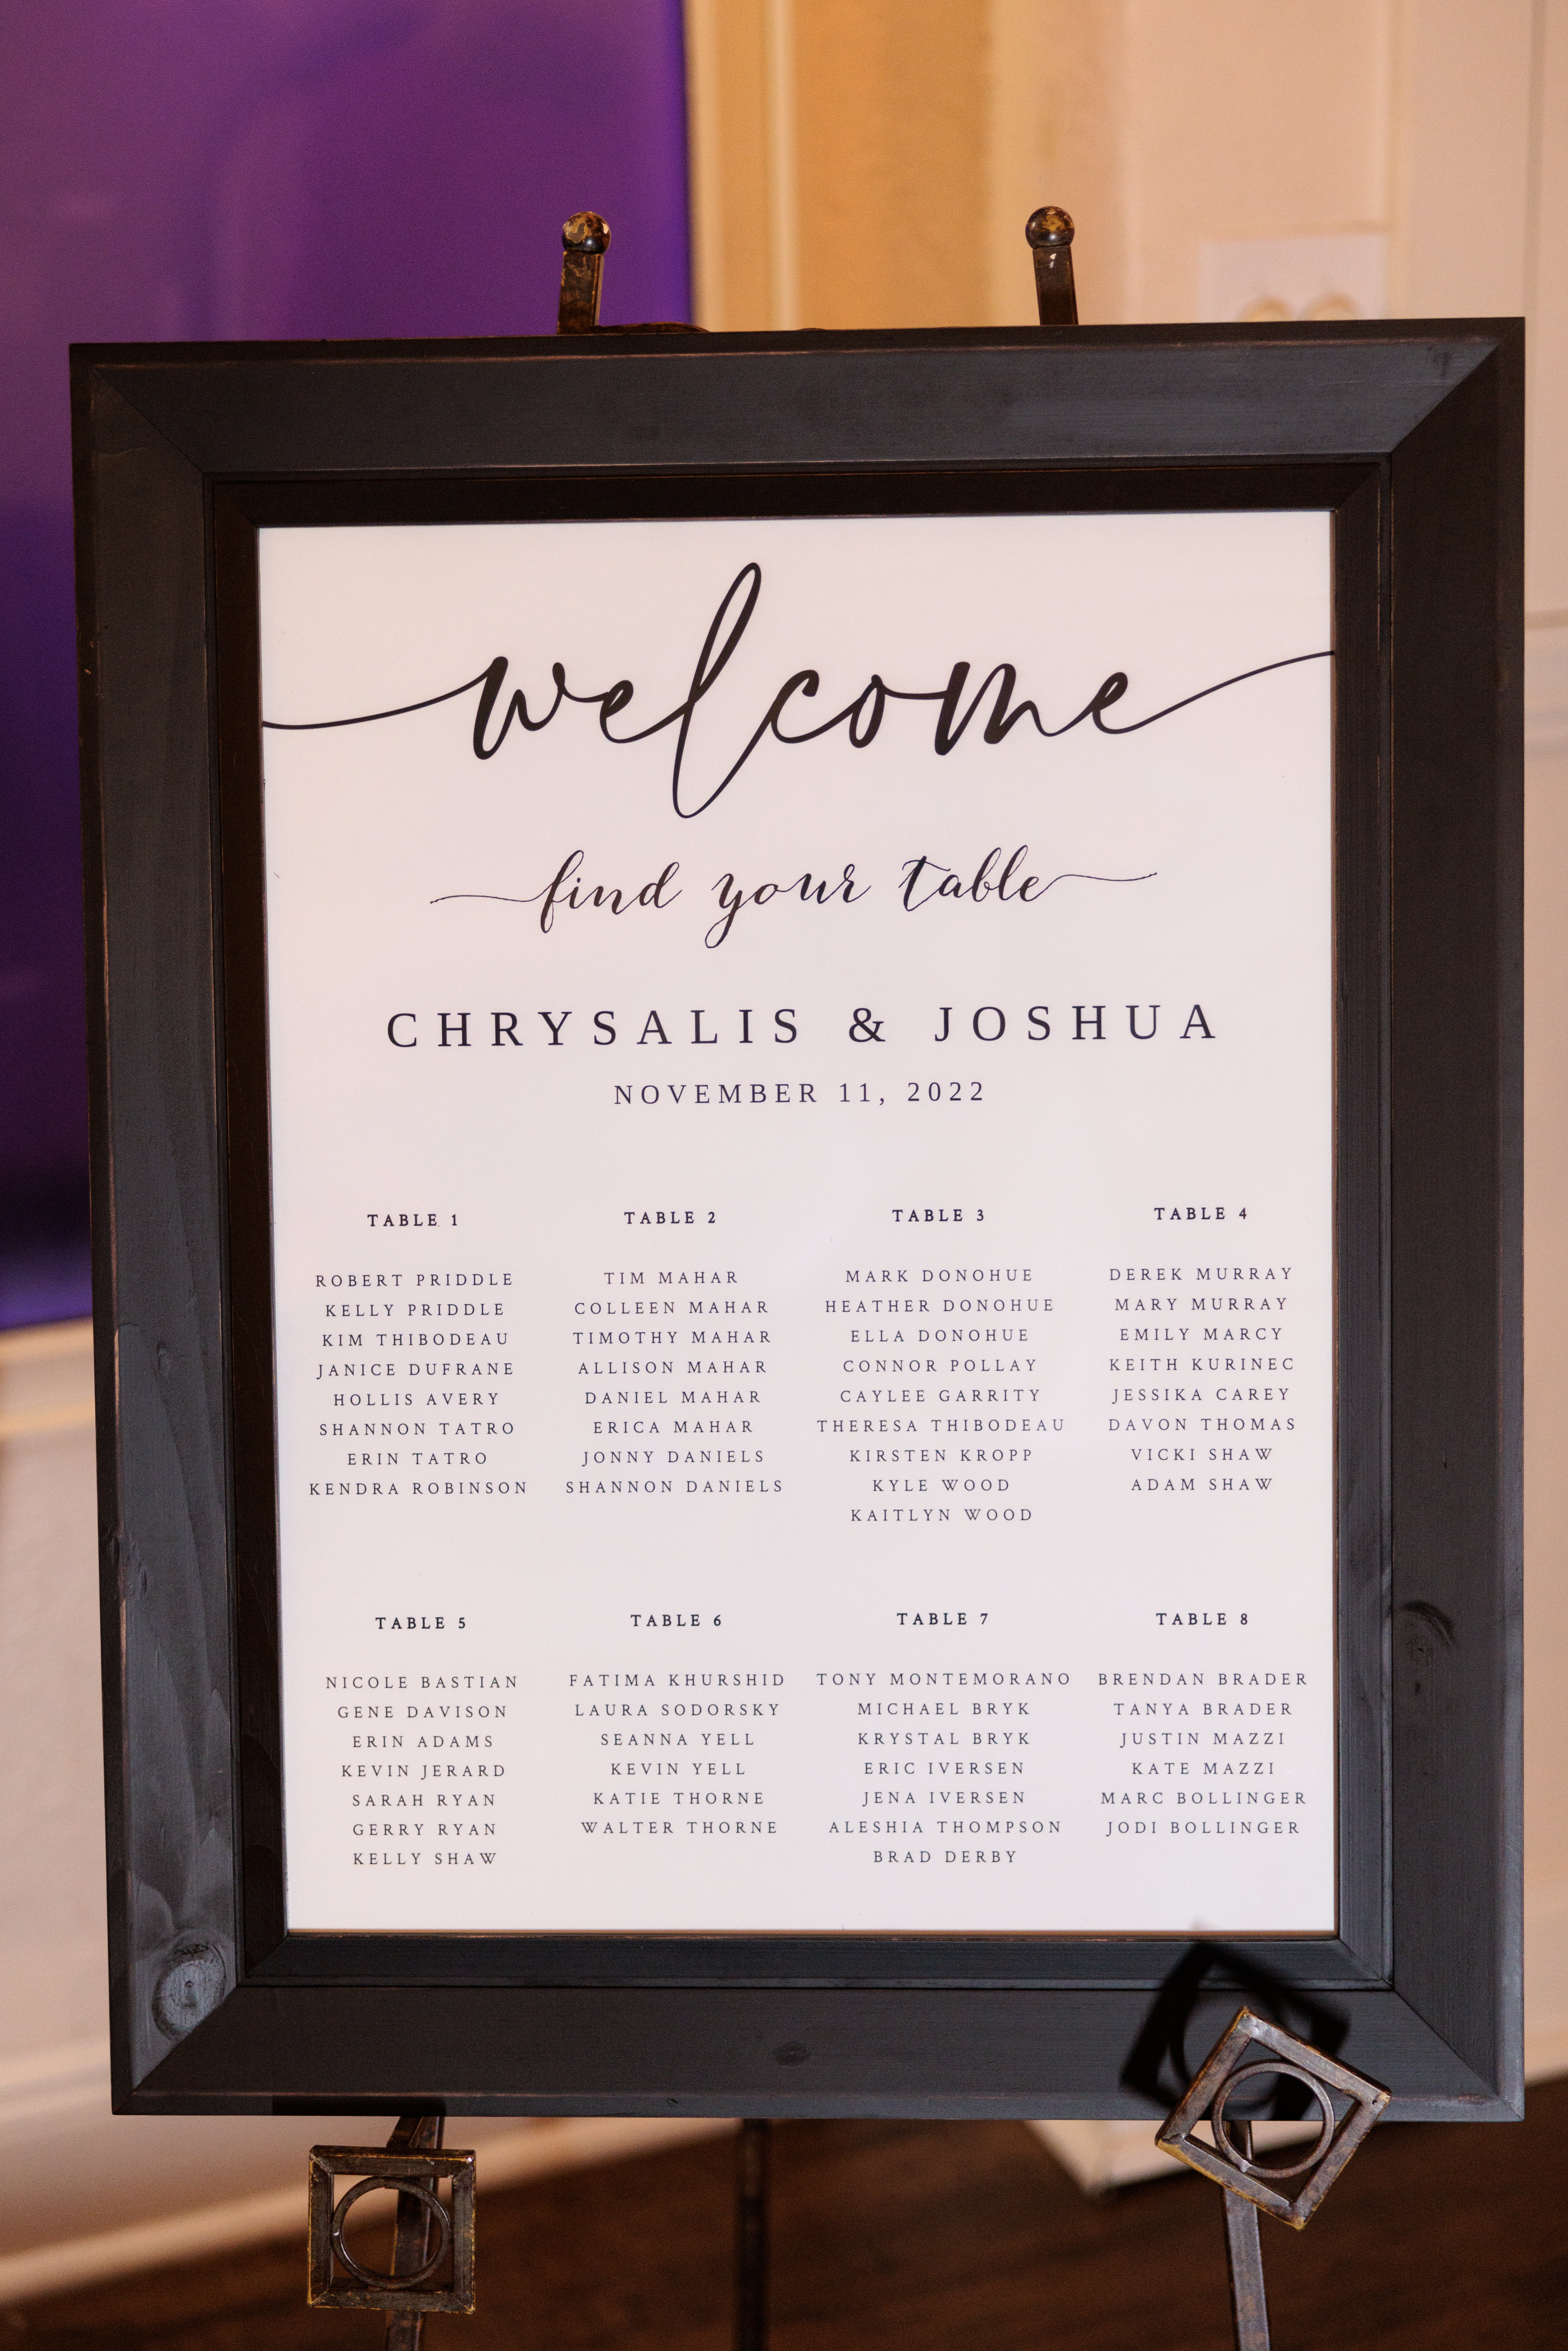 welcome
find your table
CHRYSALIS & JOSHUA
NOVEMBER 11, 2022
TABLE 1
ROBERT PRIDDLE
KELLY PRIDDLE
KIM THIBODEAU
JANICE DUFRANE
HOLLIS AVERY
SHANNON TATRO
ERIN TATRO
KENDRA ROBINSON
TABLE 2
TIM MAHAR
COLLEEN MAHAR
TIMOTHY MAHAR
ALLISON MAHAR
DANIEL MAHAR
ERICA MAHAR
JONNY DANIELS
SHANNON DANIELS
TABLE 3
MARK DONOHUE
HEATHER DONOHUE
ELLA DONOHUE
CONNOR POLLAY
CAYLEE GARRITY
THERESA THIBODEAU
KIRSTEN KROPP
KYLE WOOD
KAITLYN WOOD
TABLE 4
DEREK MURRAY
MARY MURRAY
EMILY MARCY
KEITH KURINEC
JESSIKA CAREY
DAVON THOMAS
VICKI SHAW
ADAM SHAW
TABLE 5
NICOLE BASTIAN
GENE DAVISON
ERIN ADAMS
KEVIN JERARD
SARAH RYAN
GERRY RYAN
KELLY SHAW
TABLE 6
FATIMA KHURSHID
LAURA SODORSKY
SEANNA YELL
KEVIN YELL
KATIE THORNE
WALTER THORNE
TABLE 7
TONY MONTEMORANO
MICHAEL BRYK
KRYSTAL BRYK
ERIC IVERSEN
JENA IVERSEN
ALESHIA THOMPSON
BRAD DERBY
TABLE 8
BRENDAN BRADER
TANYA BRADER
JUSTIN MAZZI
KATE MAZZI
MARC BOLLINGER
JODI BOLLINGER